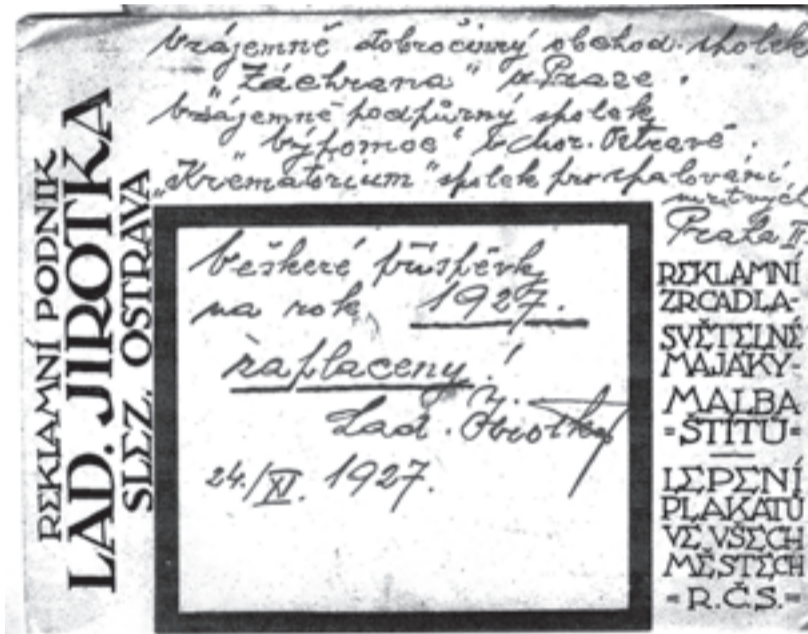 Vzájemně dobročinný obchod. spolek
"Záchrana" v Praze.
Vzájemně podpůrný spolek
"Výpomoc" v Mor. Ostravě.
"Krematorium" spolek pro spalování
mrtvých
Praha II
REKLAMNÍ PODNIK
LAD. JIROTKA
SLEZ. OSTRAVA
Veškeré příspěvky
na rok 1927.
zaplaceny!
Lad.
24./XI. 1927.
REKLAMNÍ
ZRCADLA-
SVĚTELNÉ
MAJÁKY-
MALBA
=ŠTÍTŮ=
LEPENÍ
PLAKÁTŮ
VE VŠECH
MĚSTECH
=R.Č.S.=